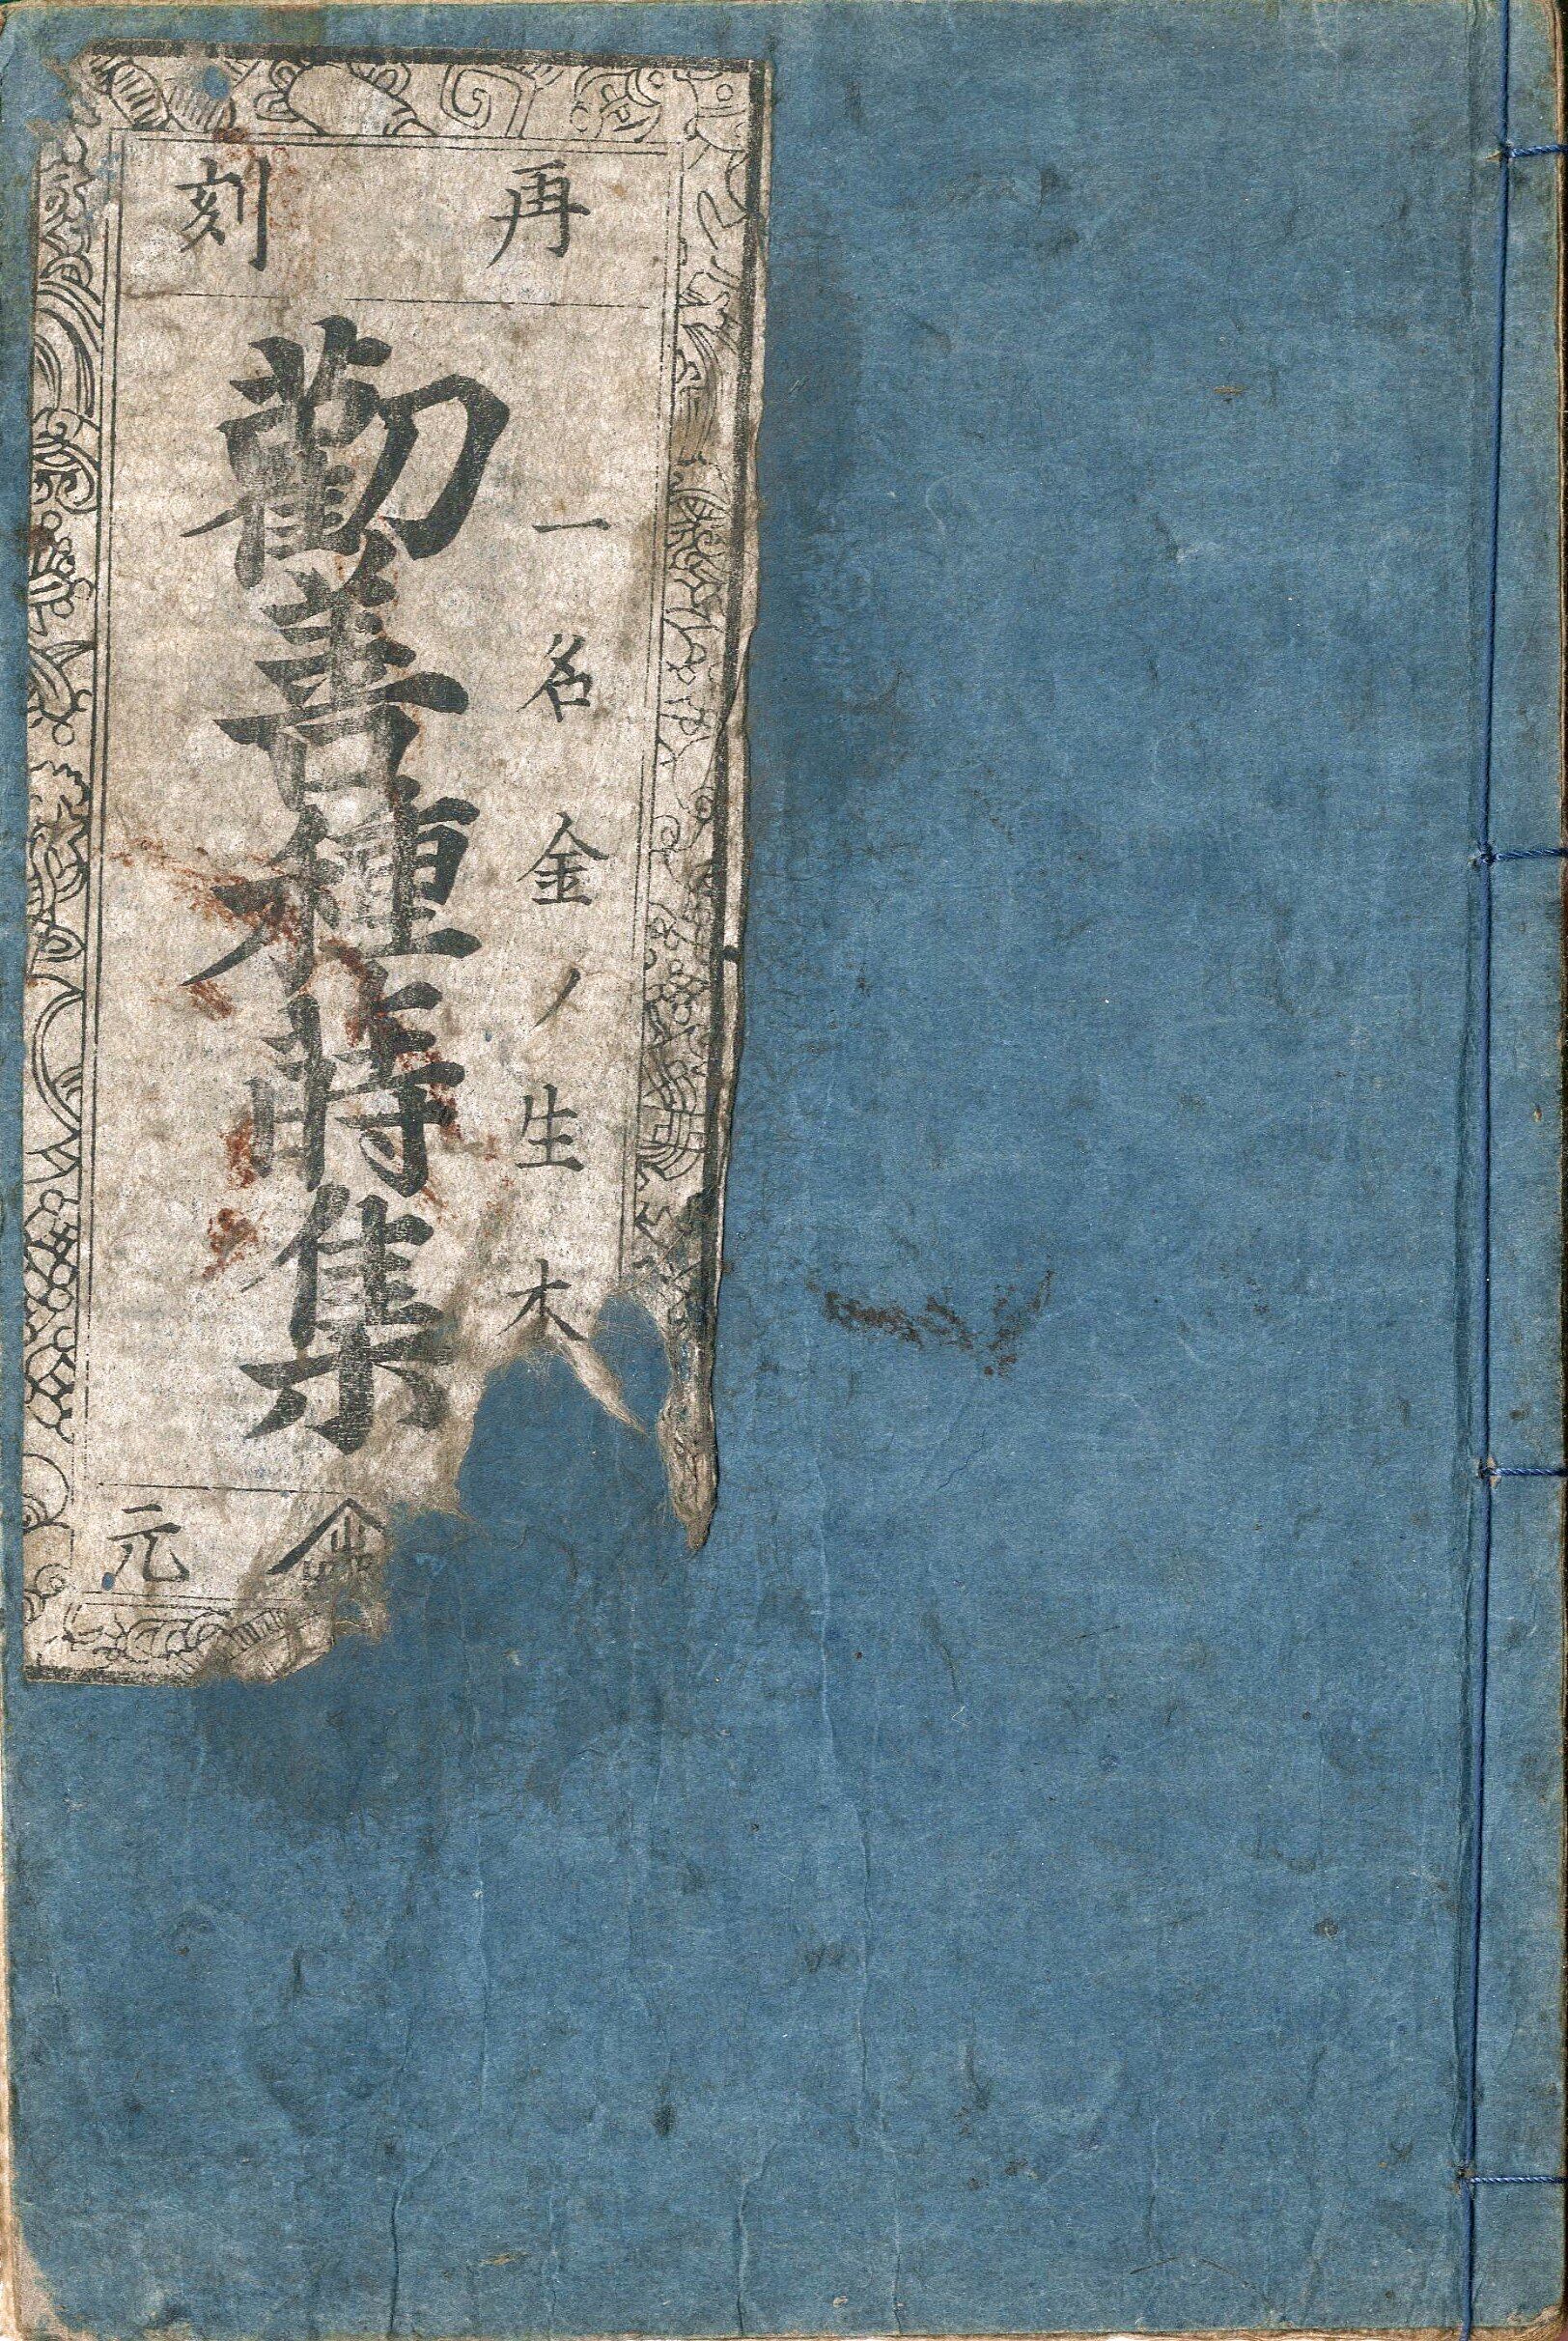 再刻
一名金ノ生木
勸善種蒔集
元